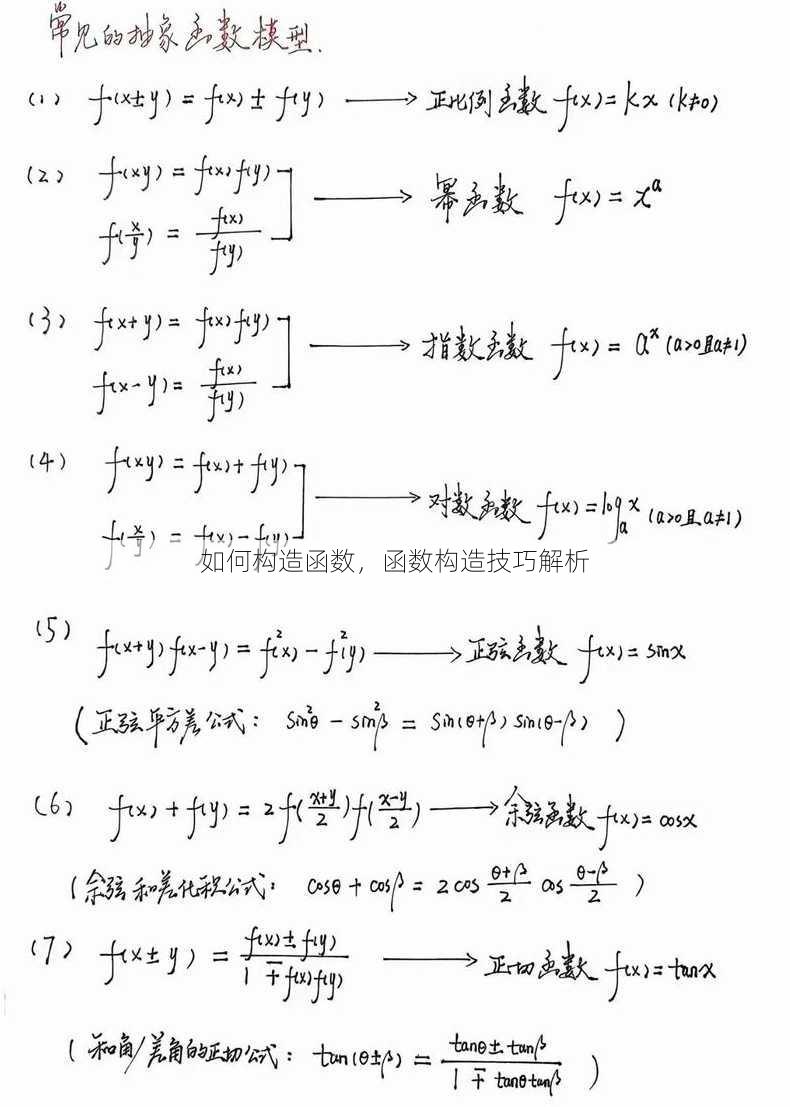 常见的抽象函数模型.
(1) f(x±y) = f(x) ± f(y) ⟶ 正比例函数 f(x) = kx (k≠0)
(2) f(xy) = f(x)f(y)
f(x/y) = f(x)/f(y) ⟶ 幂函数 f(x) = x^a
(3) f(x+y) = f(x)f(y)
f(x-y) = f(x)/f(y) ⟶ 指数函数 f(x) = a^x (a>0且a≠1)
(4) f(xy) = f(x) + f(y)
f(x/y) = f(x) - f(y) ⟶ 对数函数 f(x) = log_a x (a>0且a≠1)
如何构造函数，函数构造技巧解析
(5) f(x+y)f(x-y) = f²(x) - f²(y) ⟶ 正弦函数 f(x) = sinx
(正弦平方差公式: sin²θ - sin²β = sin(θ+β)sin(θ-β))
(6) f(x) + f(y) = 2f((x+y)/2)f((x-y)/2) ⟶ 余弦函数 f(x) = cosx
(余弦和差化积公式: cosθ + cosβ = 2cos (θ+β)/2 cos (θ-β)/2)
(7) f(x±y) = (f(x)±f(y))/(1∓f(x)f(y)) ⟶ 正切函数 f(x) = tanx
(和角/差角的正切公式: tan(θ±β) = (tanθ±tanβ)/(1∓tanθtanβ))